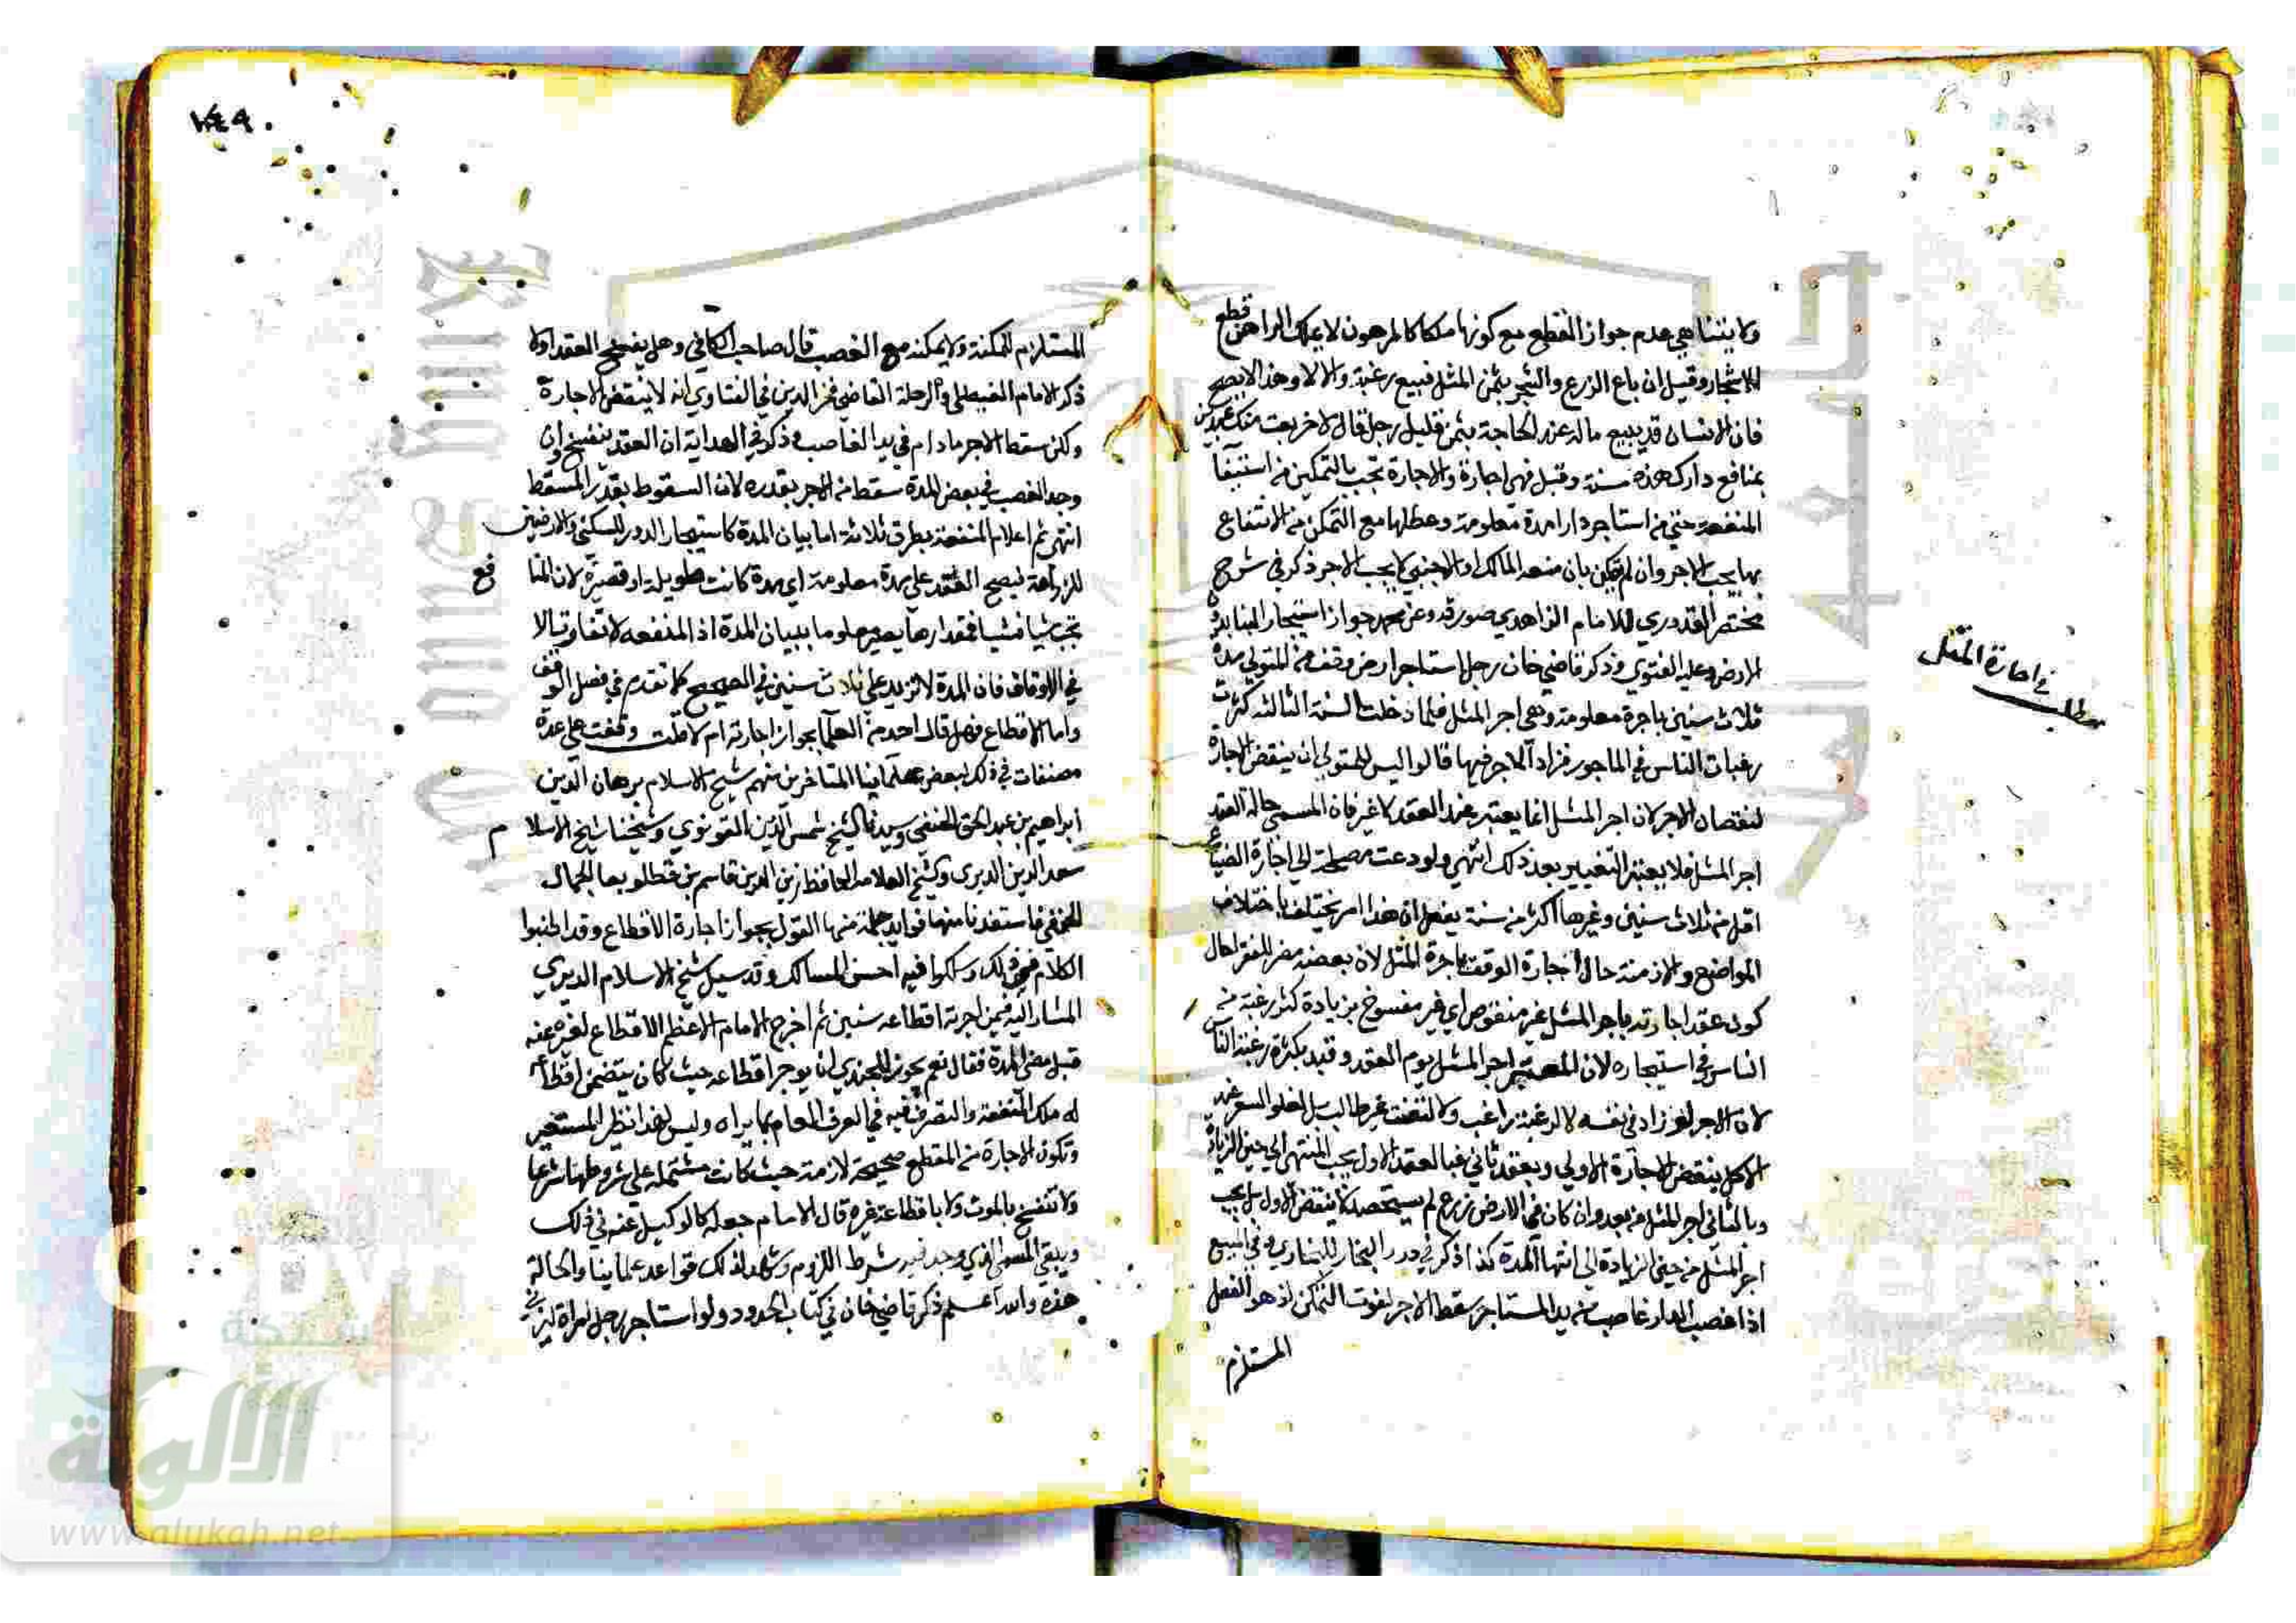 ولا يتناهي عدم جواز القطع مع كونها ملكا كالمرهون لا يملك الراهن قطع
الاشجار وقيل ان باع الزرع والشجر بثمن المثل فبيع رغبة والا لا وهذا لا يصح
فان الانسان قد يبيع ماله عند الحاجة بثمن قليل رجل قال لاخر بعت منك عبدي
بمنافع دارك هذه سنة وقبل فهي اجارة والاجارة تجب بالتمكين من استيفا
المنفعة حتي من استاجر دارا مدة معلومة وعطلها مع التمكن من الانتفاع
بها يجب الاجر وان لم يتمكن بان منعه المالك او الاجنبي لا يجب الاجر ذكر في شرح
مختصر القدوري للامام الزاهدي وعن محمد جواز استيجار البنا بدون
الارض وعليه الفتوي وذكر قاضي خان رجل استاجر ارض وقف من المتولي مدة
ثلاث سنين باجرة معلومة وهي اجر المثل فلما دخلت السنة الثالثة كثرت
رغبات الناس في الماجور فزاد الاجر فيها قالوا ليس للمتولي ان ينقض الاجارة
لنقصان الاجر لان اجر المثل انما يعتبر عند العقد لا غير فان المسمي حالة العقد
اجر المثل فلا يعتبر التغيير بعد ذلك انتهي ولو دعت مصلحة الي اجارة الضياع
اقل من ثلاث سنين وغيرها اكثر من سنة يفعل لان هذا امر يختلف باختلاف
المواضع والازمنة حال اجارة الوقف باجرة المثل لان بعضه مضر للفقرا حال
كون عقد اجارته باجر المثل غير منقوض اي غير مفسوخ بزيادة كثر رغبة من
الناس في استيجاره لان المعتبر اجر المثل يوم العقد وقيد بكثرة رغبة الناس
لان الاجر لو زاد في نفسه لا لرغبة راغب ولا لتعنت غير طالب بل لغلو السعر عند
الكل ينقض الاجارة الاولي وبعقد ثاني فبالعقد الاول يجب المنتهي الي حين الزيادة
وبالثاني اجر المثل من بعد وان كان في الارض زرع لم يستحصد لا ينقض الاول بل يجب
اجر المثل من حين الزيادة الي انتها المدة كذا ذكر في درر البحار للبخاري وفي البيع
اذا غصب الدار غاصب من يد المستاجر سقط الاجر لفوت التمكن اذ هو الفعل
المستلزم
في اجارة المثل
مطلب
١٤٩
المستلزم للمكنة ولا يمكنه مع الغصب قال صاحب الكافي وهل ينفسخ العقد اولا
ذكر الامام القاضي فخر الدين في الفتاوي انه لا ينتقض الاجارة
ولكن سقط الاجر ما دام في يد الغاصب وذكر في الهداية ان العقد ينفسخ وان
وجد الغصب في بعض المدة سقط من الاجر بقدره لان السقوط بقدر المسقط
انتهي ثم اعلام المنفعة بطرق ثلاثة اما بيان المدة كاستيجار الدور للسكني والارضين
للزراعة فيصح العقد علي مدة معلومة اي مدة كانت طويلة او قصيرة لان المنا فع
تجب شيا فشيا فمقدارها يصير معلوما ببيان المدة اذ المنفعه لا تتفاوت الا
في الاوقاف فان المدة لا تزيد علي ثلاث سنين في الصحيح كما تقدم في فصل الوقف
واما الاقطاع فهل قال احد من العلما بجواز اجارته ام لا قلت وقفت علي عدة
مصنفات في ذلك لبعض علماينا المتاخرين منهم شيخ الاسلام برهان الدين
ابراهيم بن عبد الحق الحنفي وسيدنا الشيخ شمس الدين القونوي وشيخنا شيخ الاسلا م
سعد الدين الديري وشيخ العلامة الحافظ زين الدين قاسم بن قطلوبغا الجمالي
الحنفي فاستفدنا منها فوايد جمة منها القول بجواز اجارة الاقطاع وقد اطنبوا
الكلام في ذلك وسلكوا فيه احسن المسالك وقد سيل شيخ الاسلام الديري
المشار اليه فيمن اجر اقطاعه سنين ثم اخرج الامام الاعظم الاقطاع لغيره عنه
قبل مضي المدة فقال نعم يجوز للجندي ان يوجر اقطاعه حيث كان يتضمن اقطاعه
له ملك المنفعة والتصرف فيه في العرف العام بما يراه وليس لهذا نظير المستعير
وتكون الاجارة من المقطع صحيحة لازمة حيث كانت مشتمله علي شروطها شرعا
ولا تنفسخ بالموت ولا باقطاعه غيره قال الامام جعله كالوكيل عنه في ذلك
ويبقي المسمي الذي وجد فيه شرط اللزوم ويشهد لذلك قواعد علماينا والحالة
هذه والله اعلم ذكر قاضي خان في كتاب الحدود ولو استاجر رجل امراة ليزني